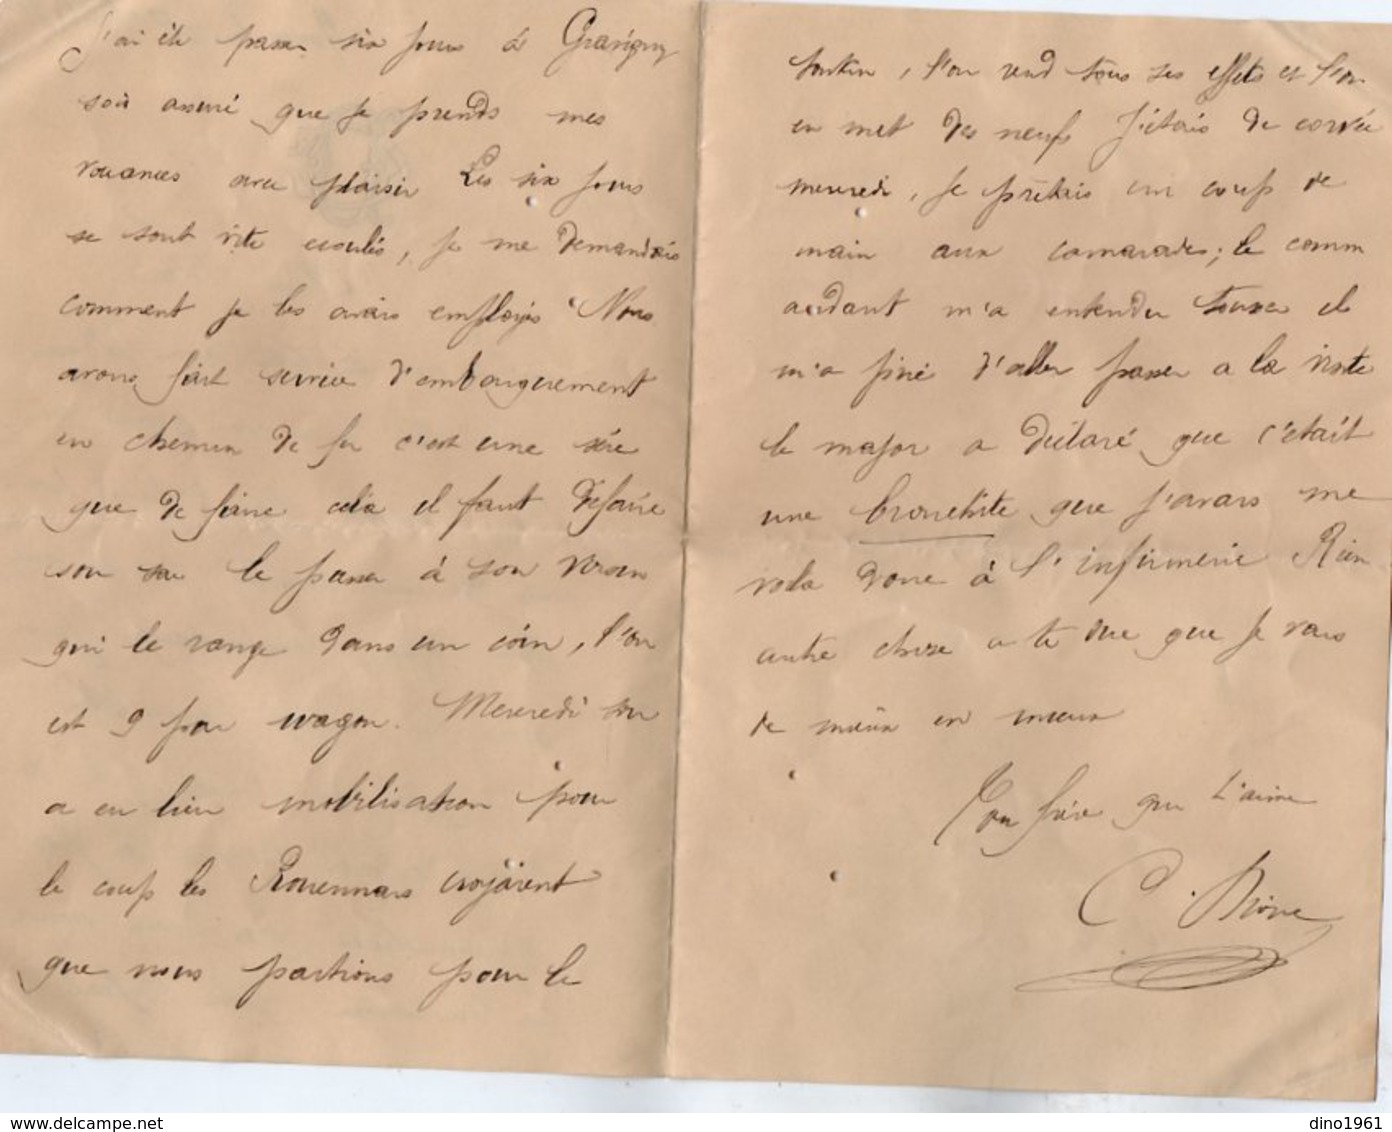 J'ai été passer six jours à Gravigny
sois assuré que je prends mes
vacances avec plaisir Les six jours
se sont vite ecoulés, je me demandais
comment je les avais employés Nous
avons fait service d'embarquement
en chemin de fer c'est une scie
que de faire cela il faut défaire
son sac le passer à son voisin
qui le range dans un coin, l'on
est 9 par wagon. Mercredi soir
a eu lieu mobilisation pour
le coup les Rouennais croyaient
que nous partions pour le
Tonkin, l'on rend tous ses effets et l'on
en met des neufs J'étais de corvée
mercredi, je prêtais un coup de
main aux camarades; le comm
andant m'a entendu tousser il
m'a forcé d'aller passer a la visite
le major a déclaré que c'était
une bronchite que j'avais me
voila donc à l'infirmerie Rien
autre chose a te que je vais
de mieux en mieux
Ton frère qui t'aime
C.
dino1961